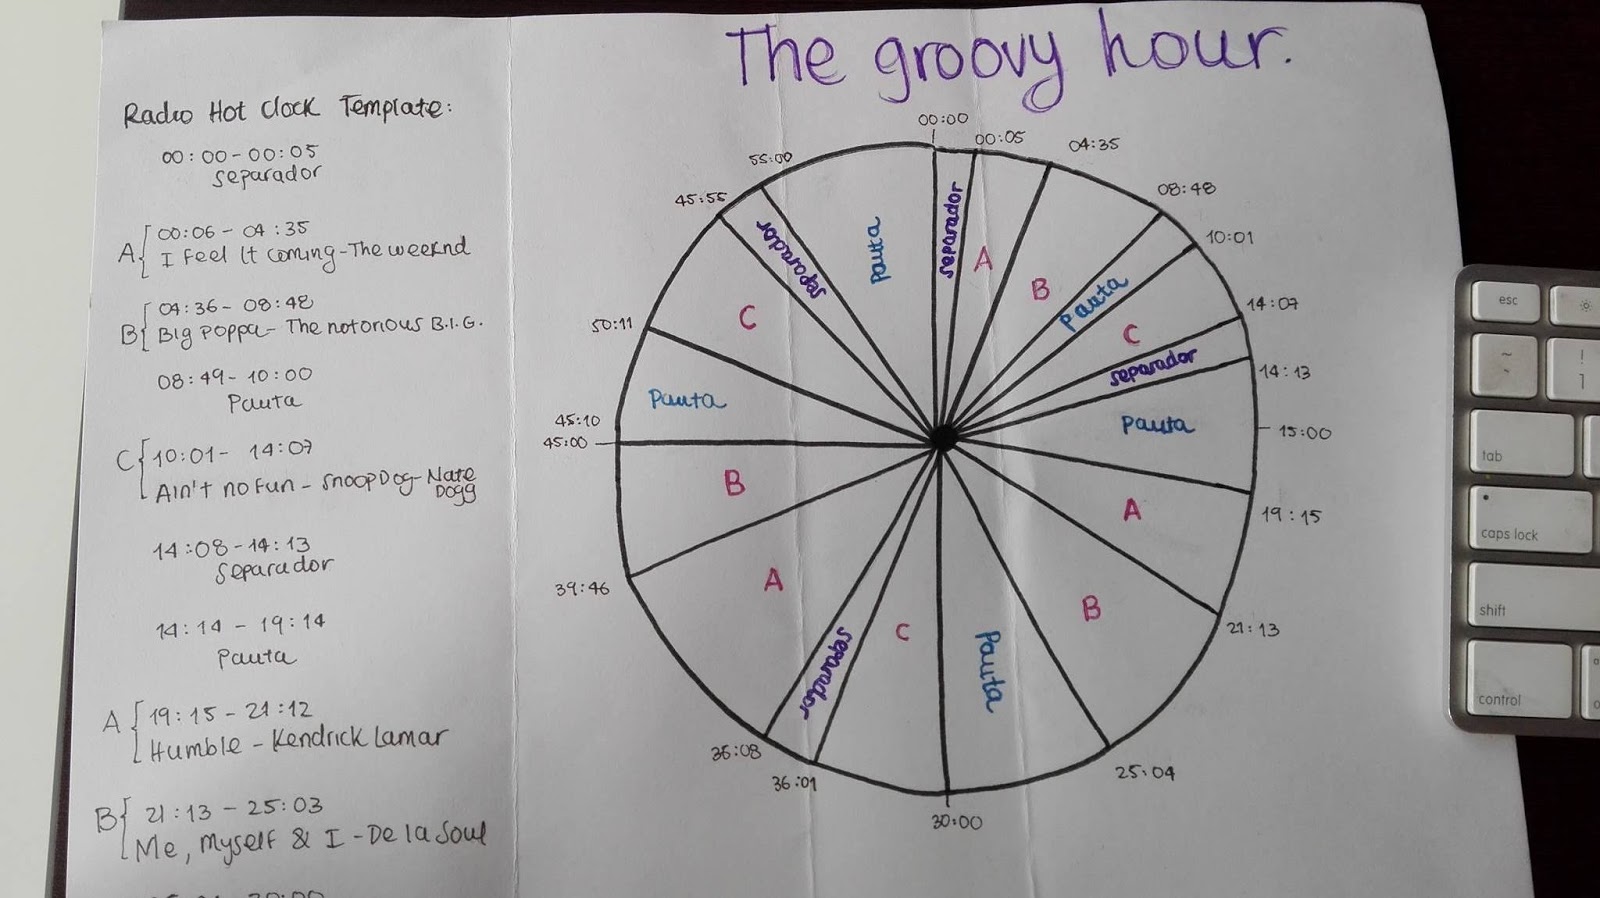 The groovy hour.
Radio Hot Clock Template:
00:00 - 00:05
separador
A
00:06 - 04:35
I Feel It coming - The weeknd
B
04:36 - 08:48
Big Poppa - The notorious B.I.G.
08:49 - 10:00
Pauta
C
10:01 - 14:07
Ain't no Fun - snoopDog - Nate
Dogg
14:08 - 14:13
separador
14:14 - 19:14
Pauta
A
19:15 - 21:12
Humble - Kendrick Lamar
B
21:13 - 25:03
Me, Myself & I - De la Soul
00:00
00:05
04:35
08:48
10:01
14:07
14:13
15:00
19:15
21:13
25:04
30:00
36:01
36:08
39:46
45:00
45:10
50:11
45:55
55:00
separador
A
B
Pauta
C
separador
Pauta
A
B
Pauta
C
separador
A
B
Pauta
C
separador
Pauta
esc
~
!
1
tab
caps lock
shift
control